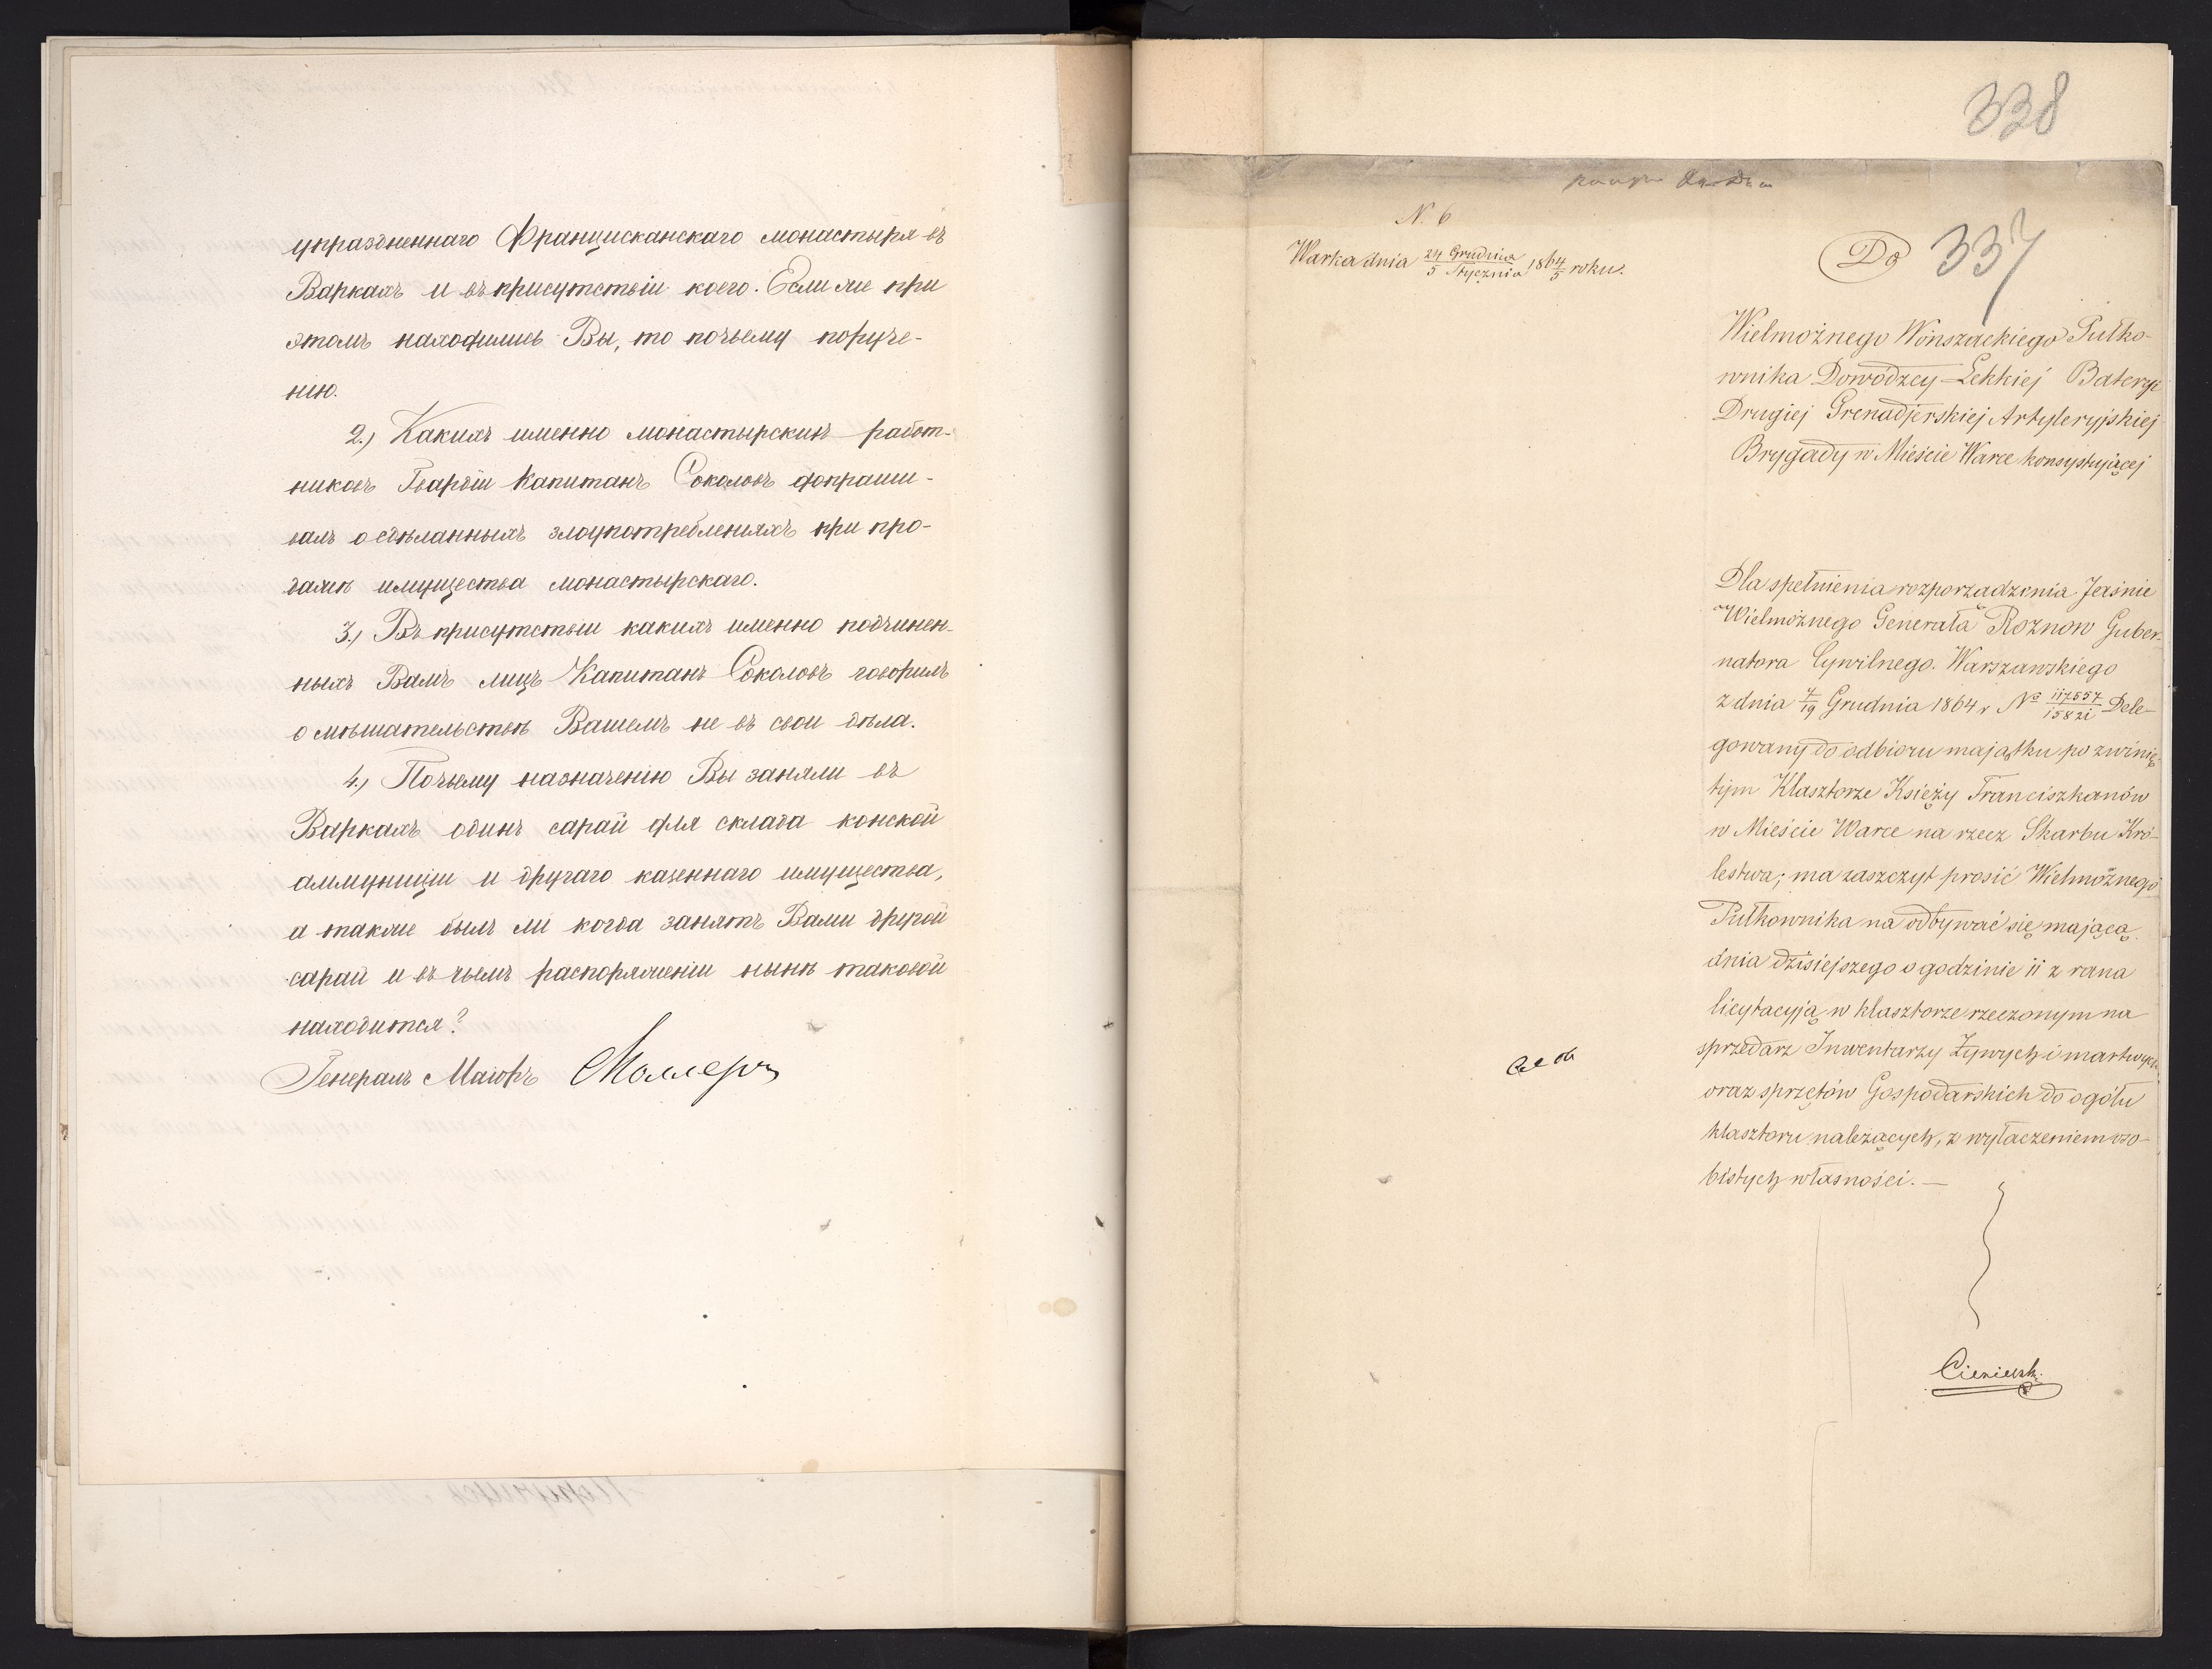 упраздненнаго Францисканскаго монастыря въ
Варкахъ и въ присутствіи коего. Если же при
этомъ находились Вы, то почьему поруче-
нію.
2.) Какихъ именно монастырскихъ работ-
никовъ Гвардіи Капитанъ Соколовъ допраши-
валъ о сдѣланныхъ злоупотребленіяхъ при про-
дажѣ имущества монастырскаго.
3.) Въ присутствіи какихъ именно подчинен-
ныхъ Вамъ лицъ Капитанъ Соколовъ говорилъ
о мѣшательствѣ Вашемъ не въ свои дѣла.
4.) Почьему назначенію Вы заняли въ
Варкахъ одинъ сарай для склада конской
аммуниціи и другаго казеннаго имущества,
а также былъ ли когда занятъ Вами другой
сарай и въ чьемъ распоряженіи нынѣ таковой
находится?
Генералъ Маіоръ Моллеръ
338
337
N. 6
Warka dnia 24 Grudnia / 5 Stycznia 1864/5 roku.
Do
Wielmożnego Wonszackiego Pułko-
wnika Dowódzcy Lekkiej Bateryi
Drugiej Grenadjerskiej Artyleryjskiej
Brygady w Mieście Warce konsystującej
Dla spełnienia rozporządzenia Jaśnie
Wielmożnego Generała Roznow Guber-
natora Cywilnego Warszawskiego
z dnia 7/19 Grudnia 1864 r No 117557/15821 Dele-
gowany do odbioru majątku po zwinię-
tym Klasztorze Księży Franciszkanów
w Mieście Warce na rzecz Skarbu Kró-
lestwa; ma zaszczyt prosić Wielmożnego
Pułkownika na odbywać się mającą
dnia dzisiejszego o godzinie 11 z rana
licytacyją w klasztorze rzeczonym na
sprzedarz Inwentarzy Żywych i martwych
oraz sprzętów Gospodarskich do ogółu
klasztoru należących, z wyłączeniem oso-
bistych własności. —